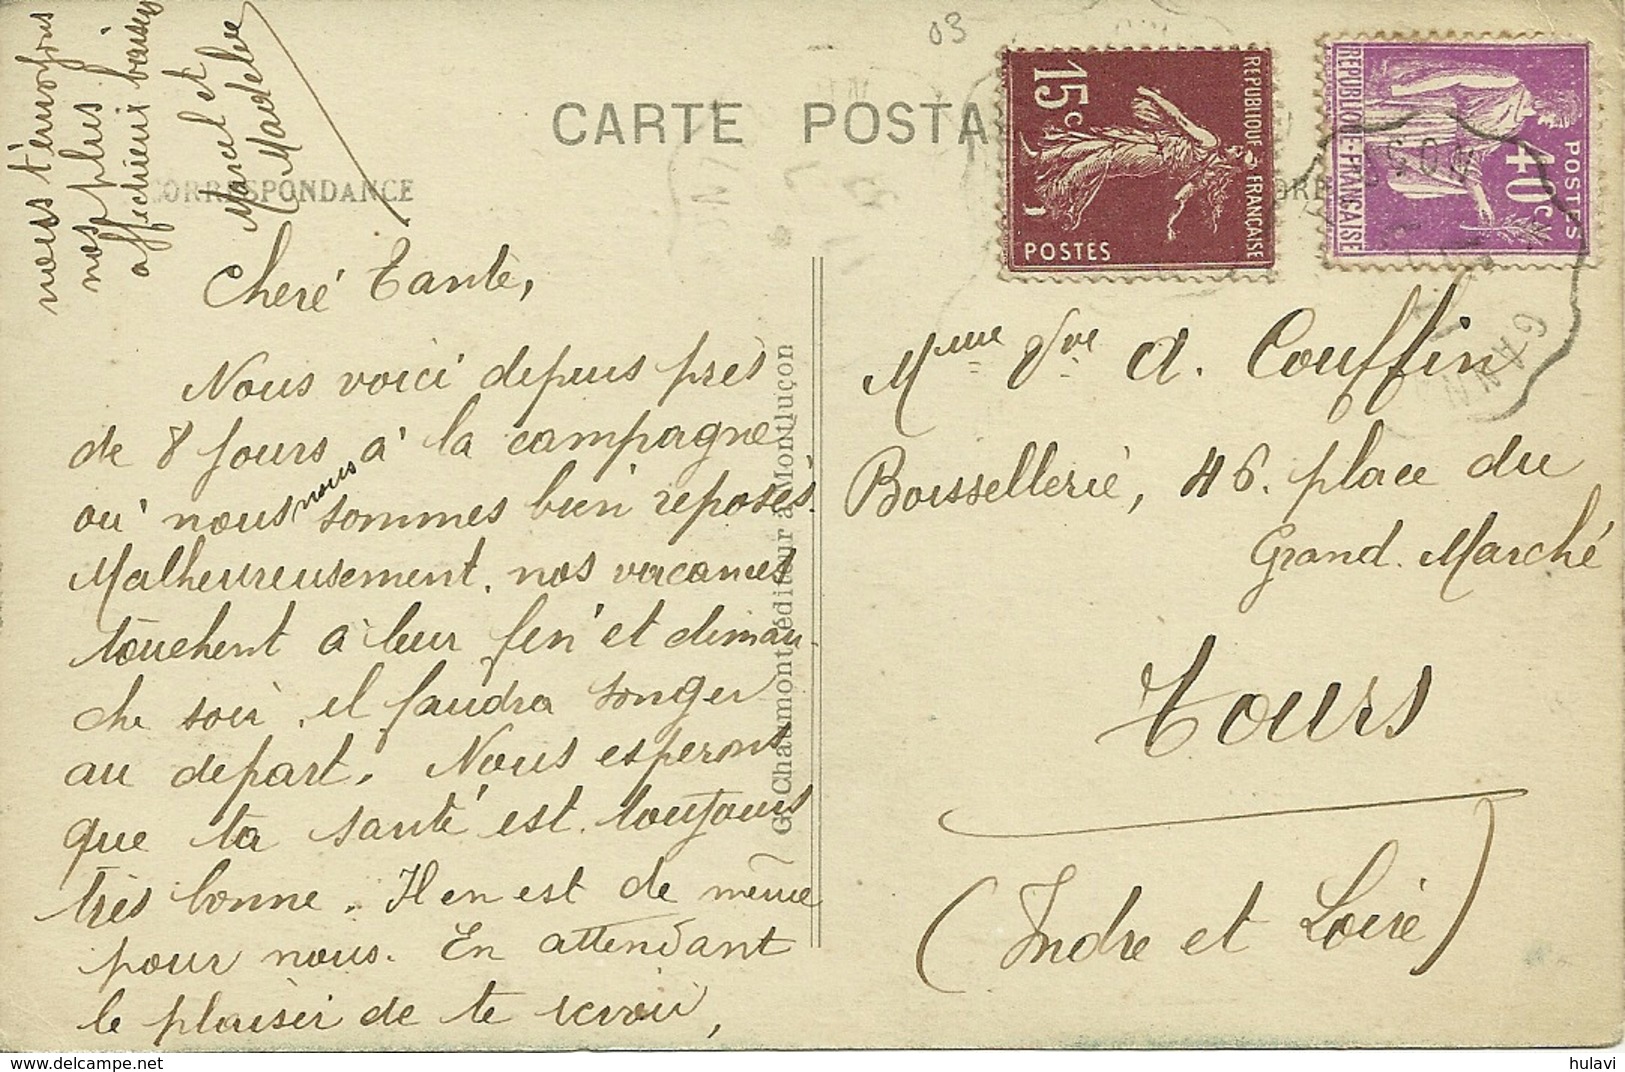 03
CARTE POSTA
CORRESPONDANCE
15c
REPUBLIQUE FRANÇAISE
POSTES
REPUBLIQUE-FRANÇAISE
40c
POSTES
Chere Tante,
Nous voici depuis près
de 8 jours à la campagne
où nous nous sommes bien reposés.
Malheureusement, nos vacances
touchent à leur fin et diman-
che soir il faudra songer
au depart. Nous esperons
que ta santé est toujours
très bonne. Il en est de même
pour nous. En attendant
le plaisir de te revoir,
nous t'envoyons
nos plus
affectueux baisers
Marcel et
Madeleine
G. Chaumont, éditeur à Montluçon
Mme Vve A. Couffin
Boissellerie, 46. place du
Grand. Marché
Tours
(Indre et Loire)
hulavi